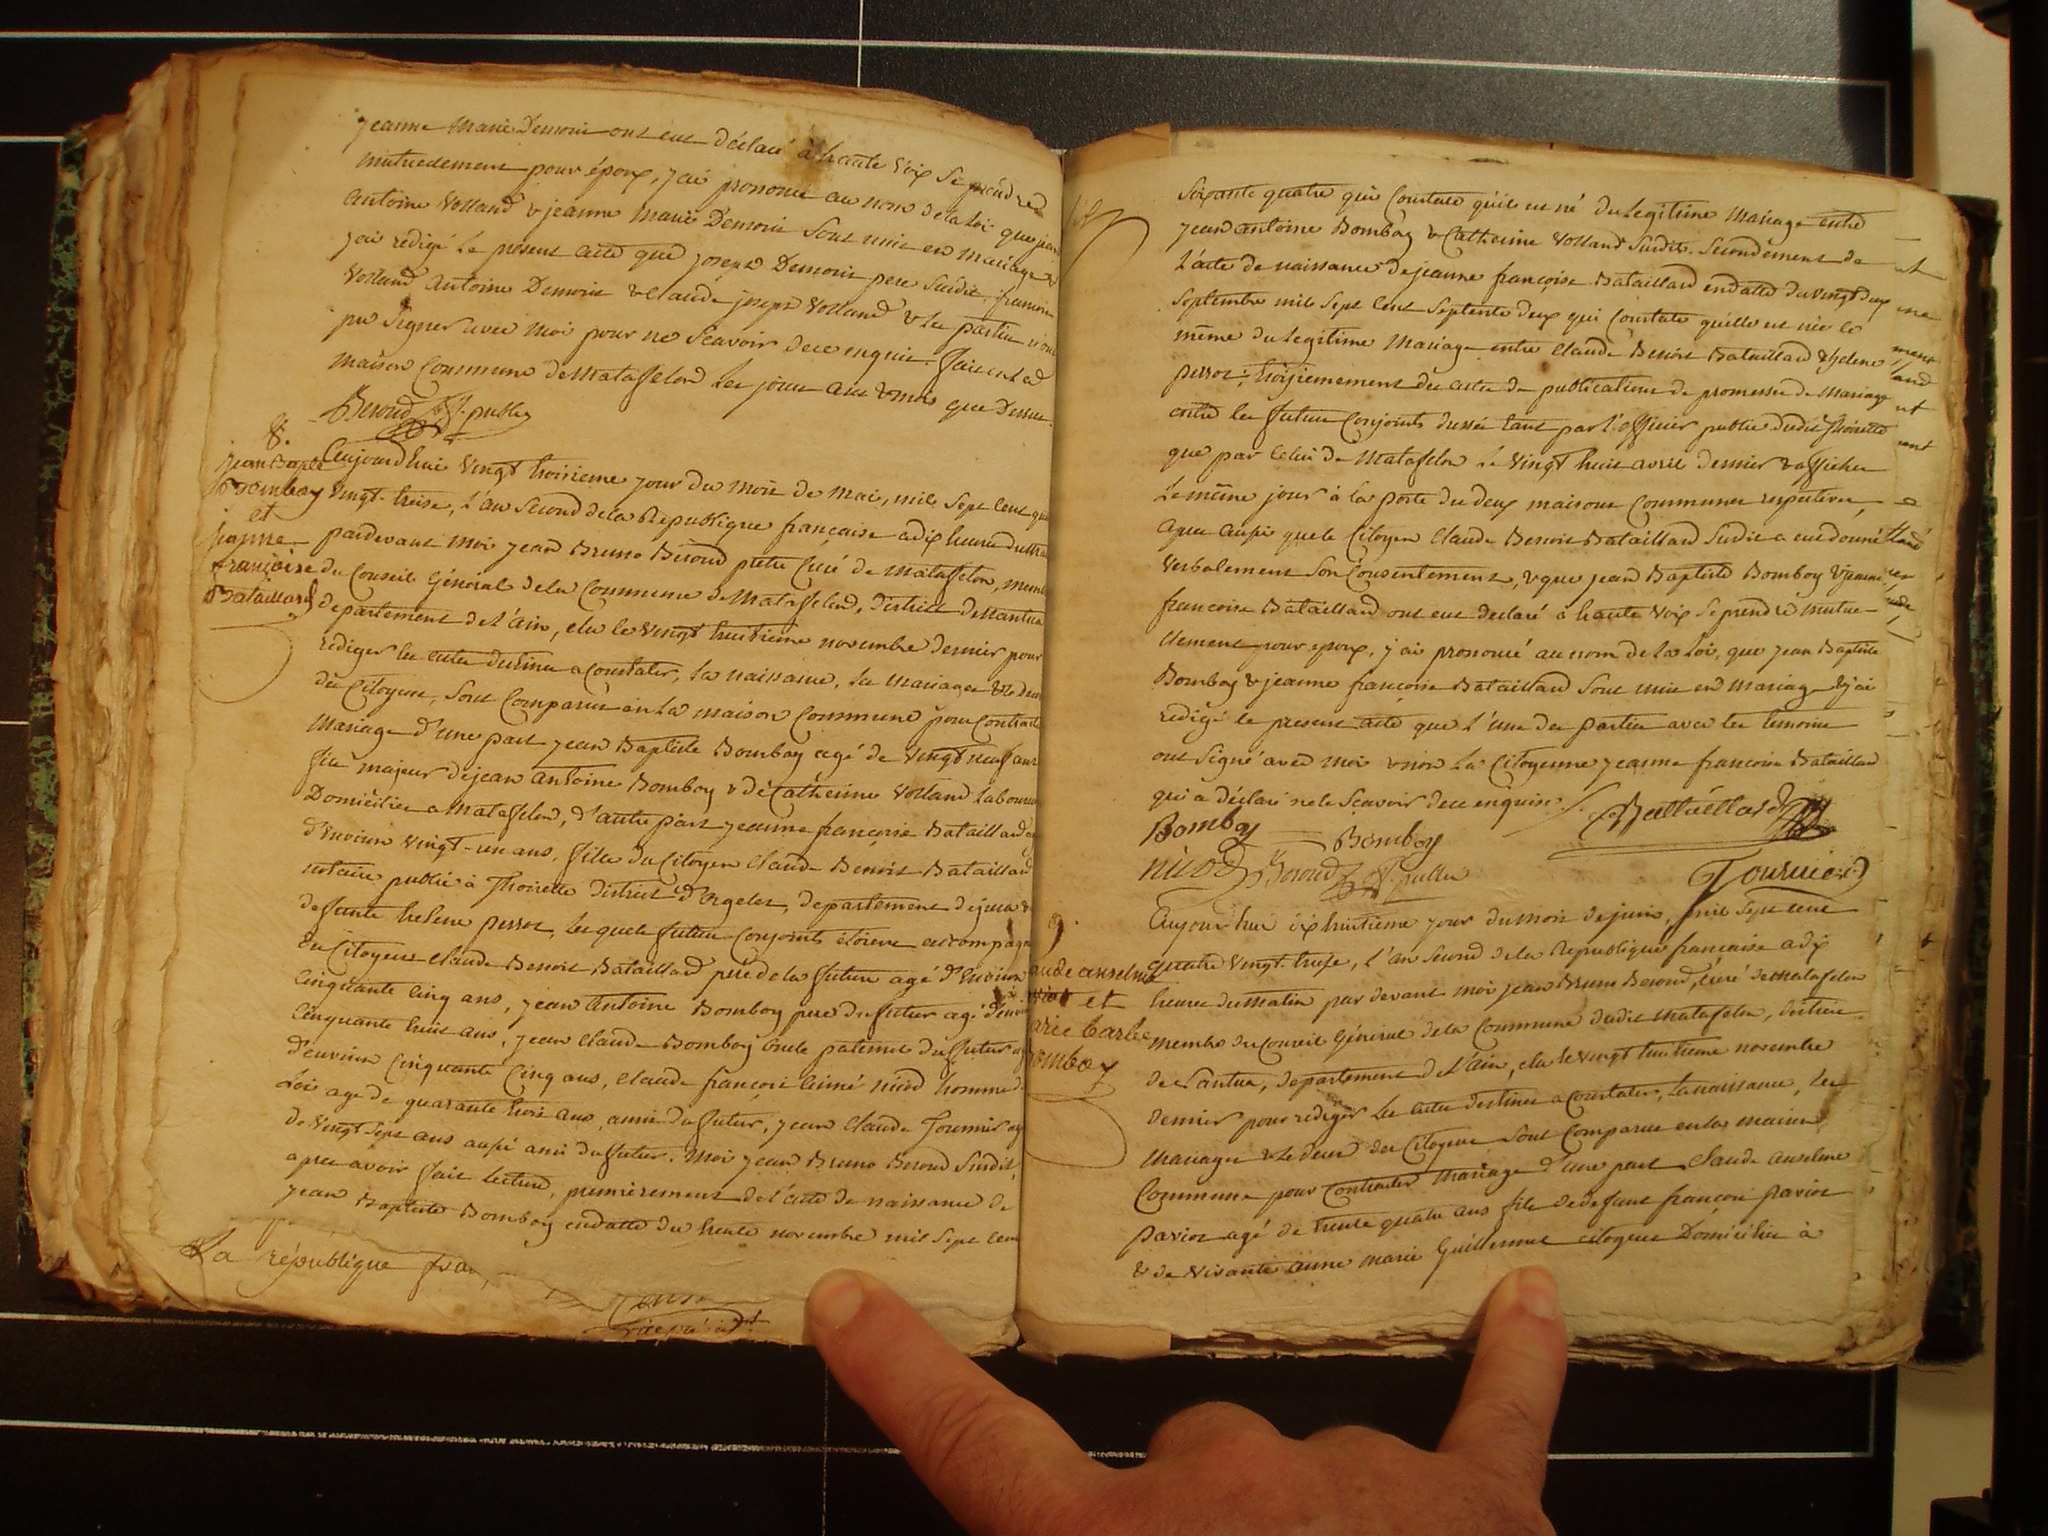 jeanne Marie Demorie ont eut déclaré à haute voix se prendre
mutuelement pour époux, j'ai prononcé au nom de la loi que jean
antoine Volland & jeanne Marie Demorie sont unis en mariage &
j'ai rédigé le present acte que joseph Demorie pere susdit, francois
Volland Antoine Demorie & claude joseph Volland & les parties n'ont
pu signer avec moi pour ne scavoir de ce enquis. fait en la
maison Commune de Mataffelon les jour an & mois que Dessus.
Beroud off. public
8.
jean Bapte
Bomboy
et
jeanne
françoise
Bataillard
Aujourd'hui vingt troisieme jour du mois de Mai, mil Sept Cent qua
vingt-treise, l'an second de la Republique francaise a dix heures du ma
pardevant moi jean Bruno Béroud pretre Curé de Mataffelon, memb
du Conseil Général de la Commune de Mataffelon, district de Nantua
departement de l'ain, elu le vingt huitieme novembre dernier pour
rédiger les actes destinés a constater, la naissance, les mariages & le deces
des Citoyens, sont Comparus en la maison Commune pour Contracter
Mariage d'une part jean Baptiste Bomboy agé de vingt neuf ans
fils majeur de jean antoine Bomboy & de Catherine Volland laboureur
Domicilies a Mataffelon, d'autre part jeanne françoise Bataillard
d'environ vingt-un ans, fille du Citoyen Claude Benoit Bataillard
notaire public à Thoirette district d'orgelet, departement du jura &
defunte helene perrot, lesquels futurs Conjoints étoient accompagn
du Citoyen Claude Benoit Bataillard pere de la future agé d'environ
Cinquante Cinq ans, jean Antoine Bomboy pere du futur agé d'environ
Cinquante huit ans, jean Claude Bomboy oncle paternel du futur ag
d'environ Cinquante Cinq ans, Claude françois aimé nicod homme de
loi agé de quarante trois ans, amie du futur, jean Claude Tournier ag
de vingt sept ans aussi ami du futur. Moi jean Bruno Beroud Susdit,
apres avoir fait lecture, premierement de l'acte de naissance de
jean Baptiste Bomboy en datte du trente novembre mil Sept Cent
La république fran
Soixante quatre qui Constate qu'il est né du legitime Mariage entre
jean antoine Bomboy & Catherine Volland susdits. Secondement de
l'acte de naissance de jeanne françoise Bataillard en datte du vingt deux
Septembre mil Sept Cent Septente deux qui Constate qu'elle est née le
même du legitime Mariage entre Claude Benoit Bataillard & helene
perrot; troisiemement des actes de publications de promesses de Mariage
entre les futurs Conjoints dressés tant par l'officier public dudit Thoirette
que par celui de Mataffelon le vingt huit avril dernier & affichés
le même jour à la porte des deux maisons Communes respectives,
apres aussi que le Citoyen Claude Benoit Bataillard Susdit a eut donné
verbalement son Consentement, & que jean Baptiste Bomboy & jeanne
francoise Bataillard ont eut declaré à haute voix se prendre mutue-
-llement pour epoux, j'ai prononcé au nom de la loi, que jean Baptiste
Bomboy & jeanne francoise Bataillard sont unis en mariage & j'ai
redigé le present acte que l'une des parties avec les temoins
ont signé avec moi & non la Citoyenne jeanne francoise Bataillard
qui a déclaré ne le Scavoir de ce enquise
Battaillard
Bomboy
Bomboy
nicod
Beroud off. public
Tournier
9.
aude anselme
et
arie Barbe
omboy
Aujourd'hui dix huitieme jour du mois de juin, mil sept cent
quatre vingt-treise, l'an second de la Republique francaise a dix
heures du matin par devant moi jean Bruno Beroud, curé de Mataffelon
membre du Conseil Général de la Commune dudit Mataffelon, district
de Nantua, departement de l'ain, elu le vingt huitieme novembre
dernier pour rédiger les actes destinés a constater, la naissance, les
mariages & le deces des Citoyens sont Comparus en la maison
Commune pour contracter Mariage d'une part Claude anselme
pavior agé de trente quatre ans fils de defunt francois pavior
& de vivante anne marie Guillermet citoyens Domicilies à